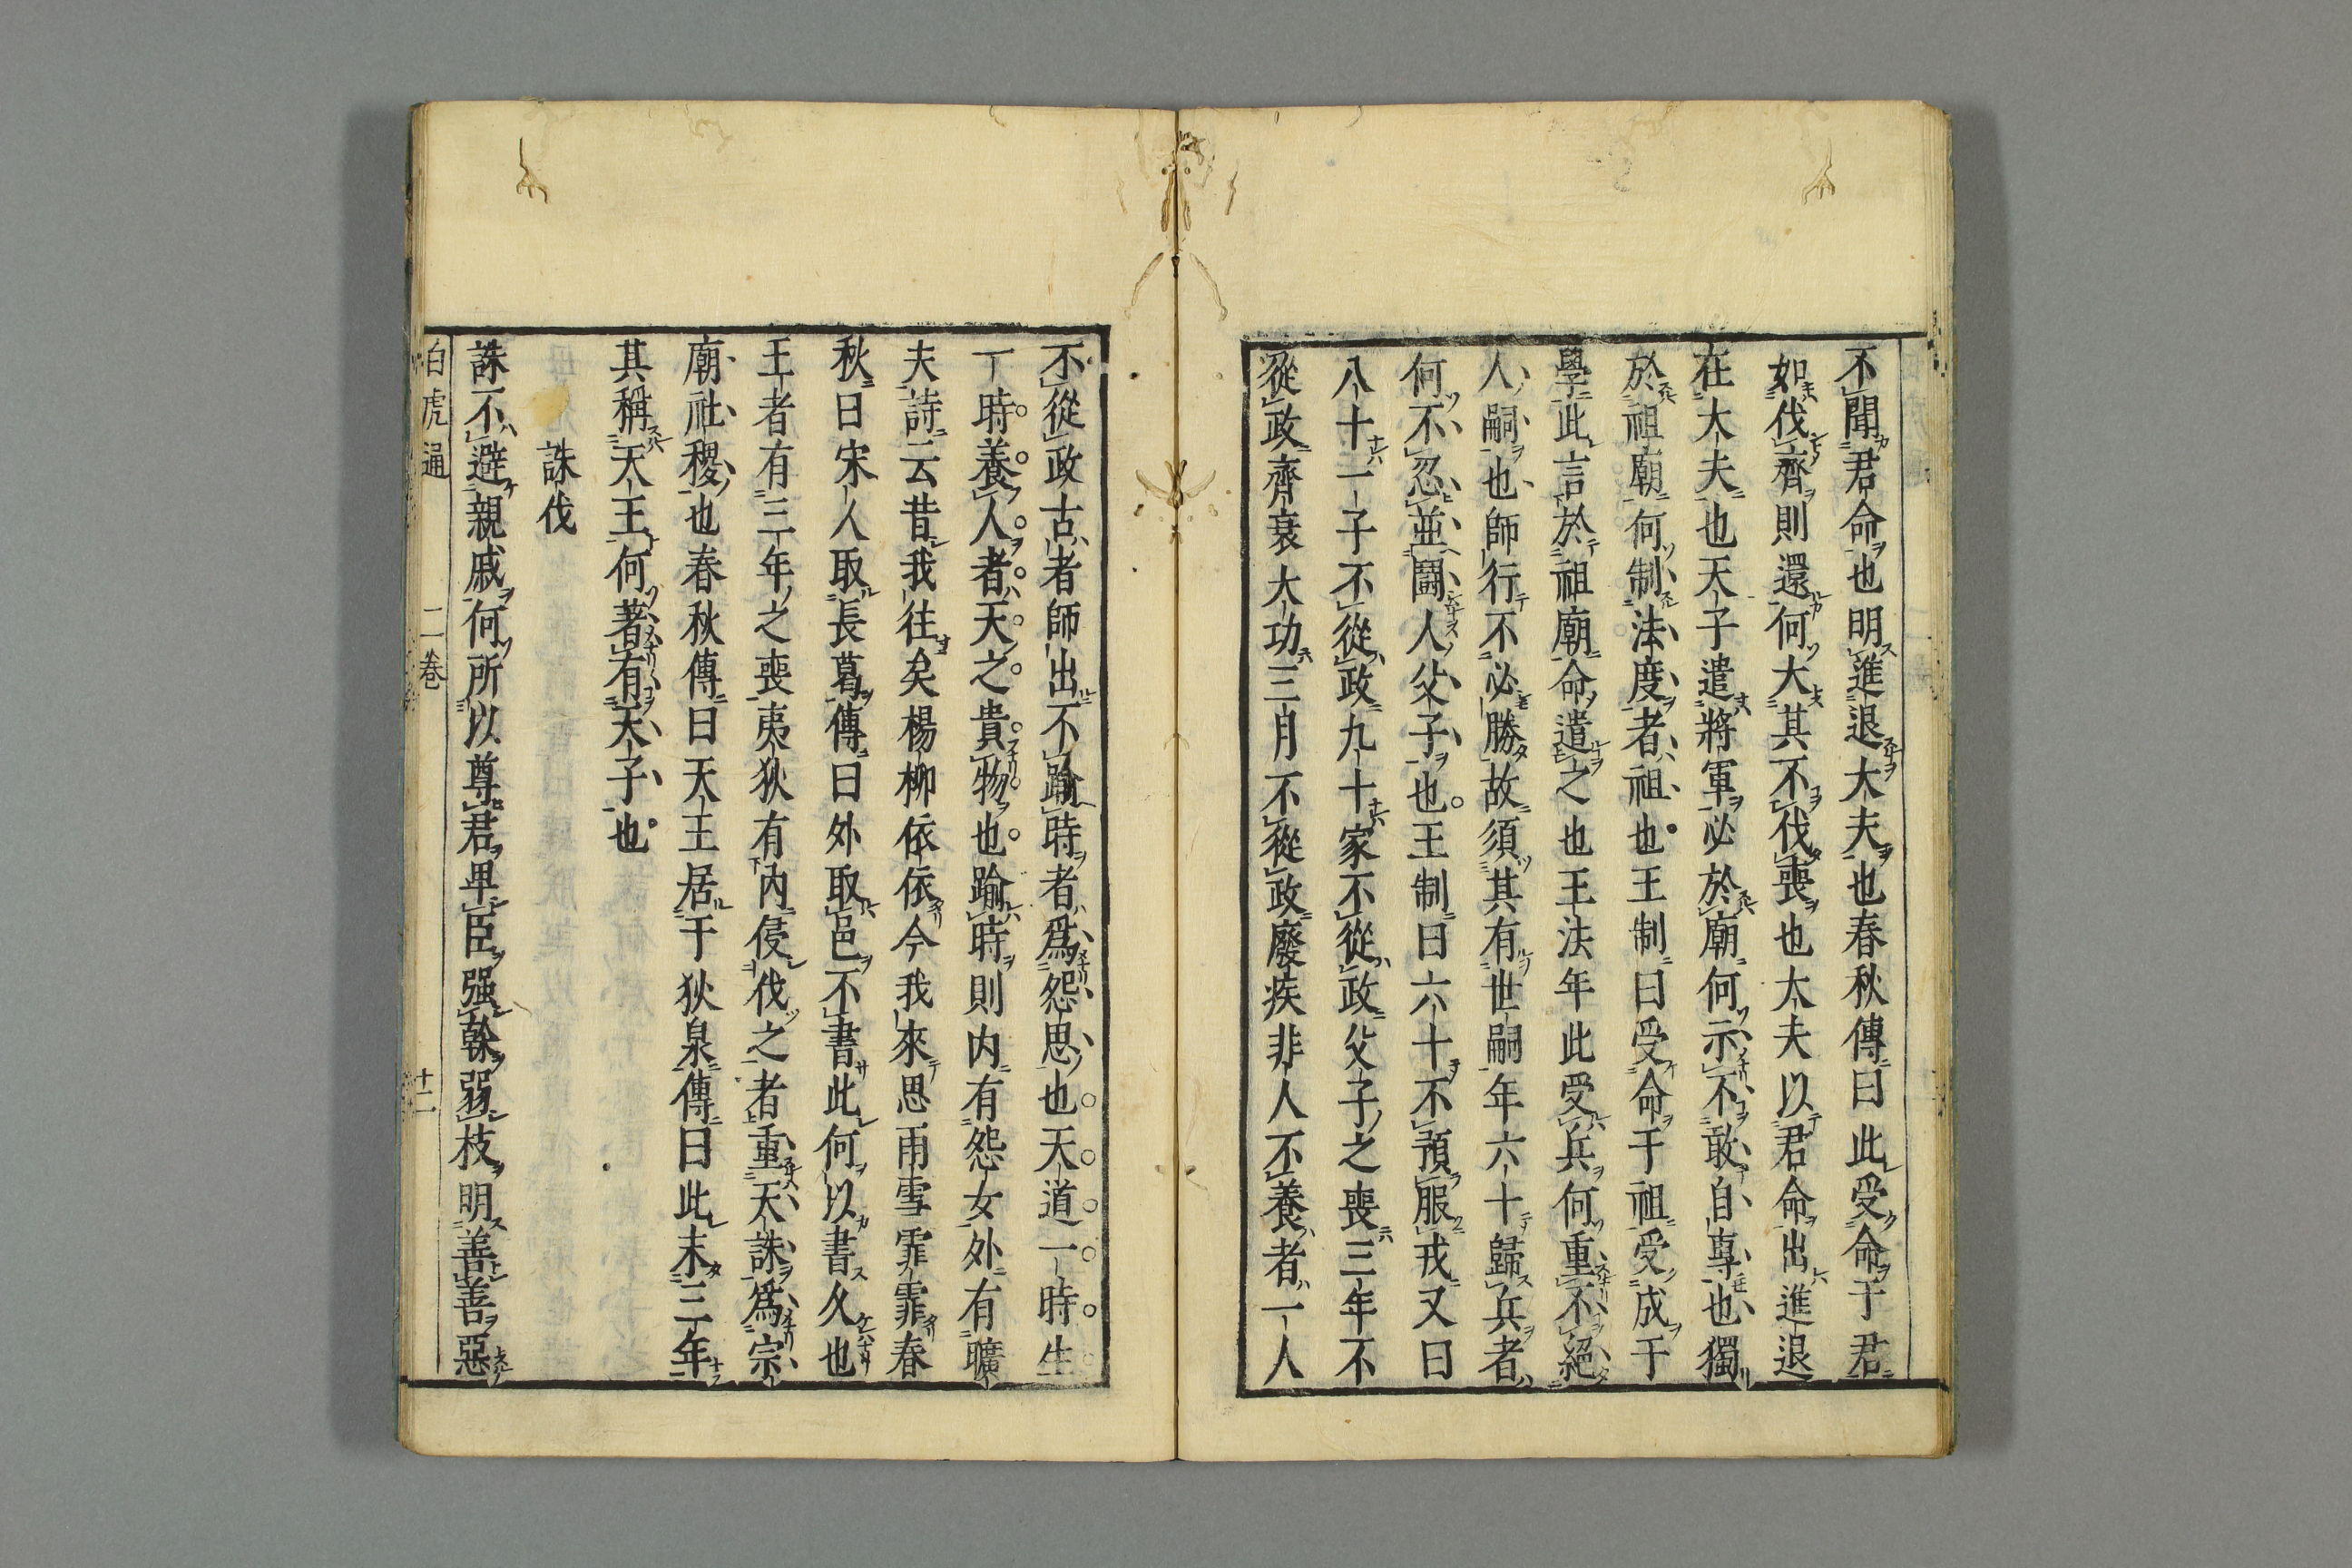 不聞君命也明進退大夫也春秋傳曰此受命于君
如伐齊則還何大其不伐喪也大夫以君命出進退
在大夫也天子遣將軍必於廟何示不敢自專也獨
於祖廟何制法度者祖也王制曰受命于祖受成于
學此言於祖廟命遣之也王法年此受兵何重不絕
人嗣也師行不必勝故須其有世嗣年六十歸兵者
何不忍並鬪人父子也王制曰六十不預服戎又曰
八十一子不從政九十家不從政父子之喪三年不
從政齊衰大功三月不從政廢疾非人不養者一人
不從政古者師出不踰時者爲怨思也天道一時生
一時養人者天之貴物也踰時則内有怨女外有曠
夫詩云昔我往矣楊柳依依今我來思雨雪霏霏春
秋曰宋人取長葛傳曰外取邑不書此何以書久也
王者有三年之喪夷狄有内侵伐之者重天誅爲宗
廟社稷也春秋傳曰天王居于狄泉傳曰此未三年
其稱天王何著有天子也
誅伐
誅不避親戚何所以尊君卑臣强榦弱枝明善善惡
白虎通 二卷 十二